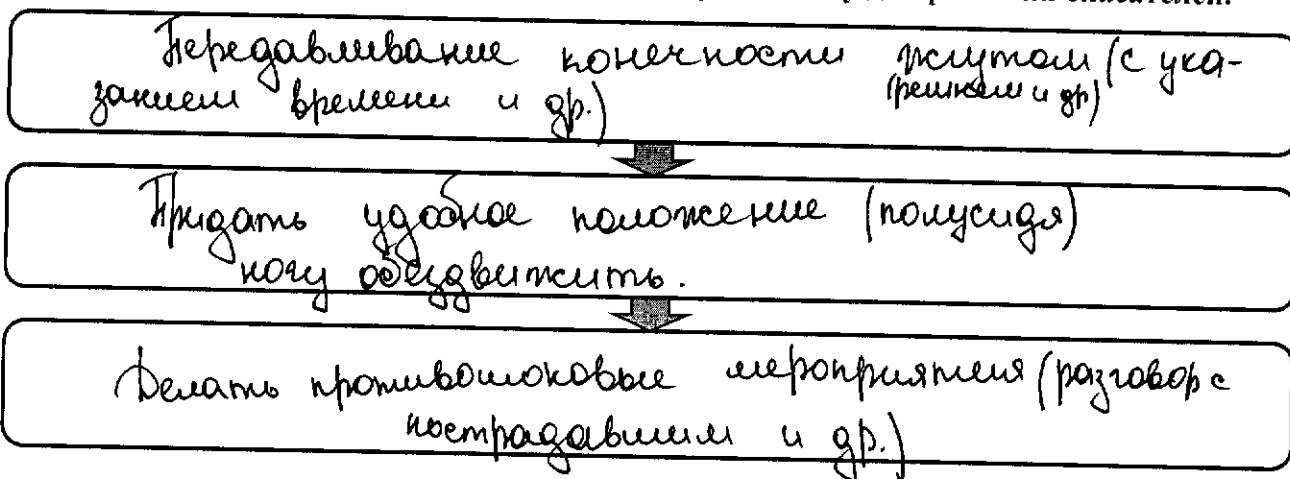 спасателей.
Передавливание конечности жгутом (с ука-
(ремнем и др)
занием времени и др.)
Придать удобное положение (полусидя)
ногу обездвижить.
Делать противошоковые мероприятия (разговор с
пострадавшим и др.)